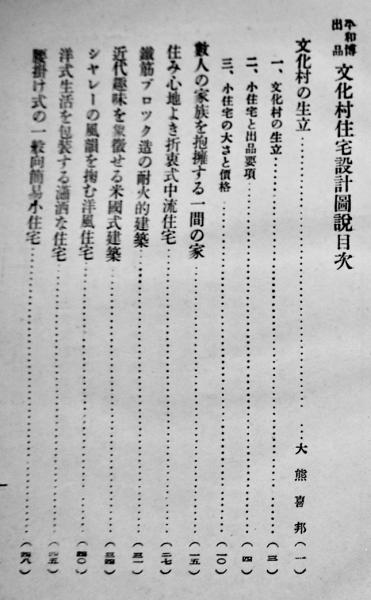 平和博出品 文化村住宅設計圖說目次
文化村の生立……大熊喜邦(一)
一、文化村の生立……(三)
二、小住宅と出品要項……(四)
三、小住宅の大さと價格……(一〇)
數人の家族を抱擁する一間の家……(一五)
住み心地よき折衷式中流住宅……(二七)
鐵筋ブロツク造の耐火的建築……(三一)
近代趣味を象徵せる米國式建築……(三四)
シヤレーの風韻を掬む洋風住宅……(四〇)
洋式生活を包裝する瀟洒な住宅……(四五)
腰掛け式の一般向簡易小住宅……(四八)